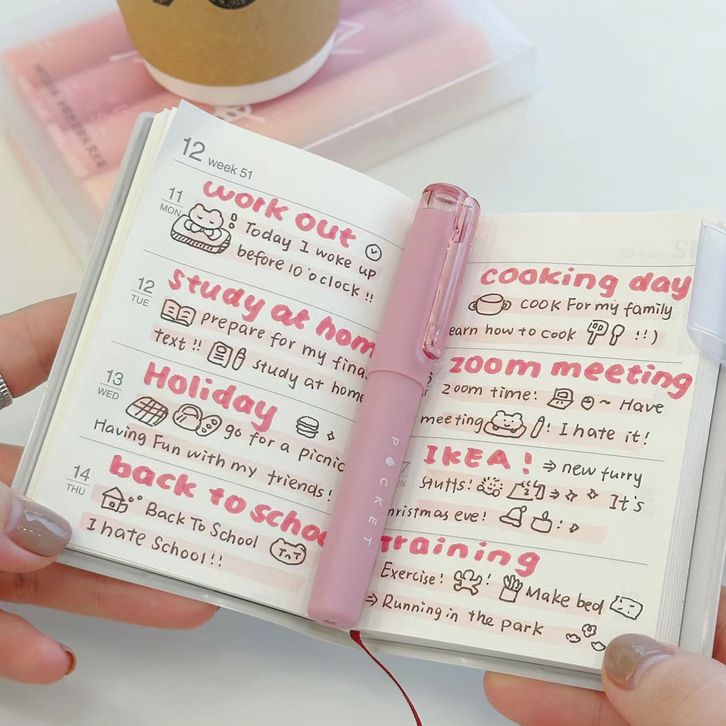 12 week 51
11
MON
work out
Today I woke up
before 10 o'clock !!
12
TUE
study at hom
prepare for my fina
text !! study at home
13
WED
Holiday
go for a picnic
Having Fun with my friends!
14
THU
back to schoo
Back To School
I hate School!!
POCKET
cooking day
cook For my family
earn how to cook !!)
zoom meeting
zoom time! ~ Have
meeting ! I hate it!
IKEA! ⇒ new furry
stuffs! ⇒ It's
hristmas eve!
training
Exercise! ! Make bed
⇒ Running in the park